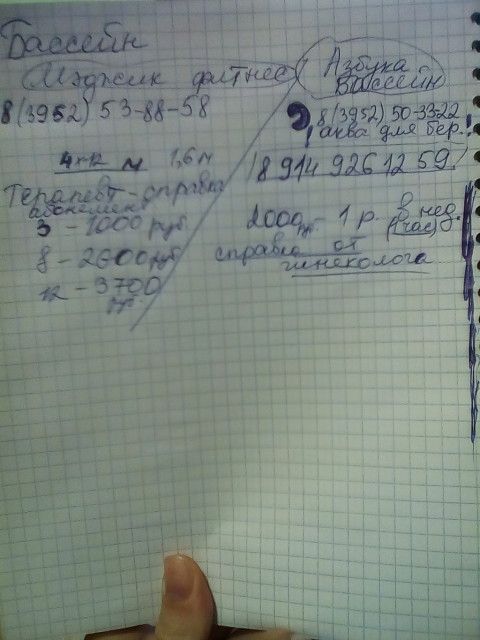 Бассейн
Мэджик фитнес
8(3952) 53-88-58
1,6 м
Терапевт-справка
абонемент
3 - 1000 руб.
8 - 2600 руб
12 - 3700
руб.
Азбука
Бассейн
8(3952) 50-33-22
аква для бер.!
8 914 926 12 59!
2000 руб - 1 р. в нед.
(1 час)
справка от
гинеколога